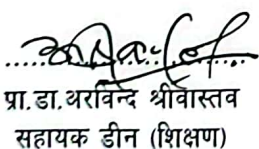 प्रा.डा.अरविन्द श्रीवास्तव
सहायक डीन (शिक्षण)